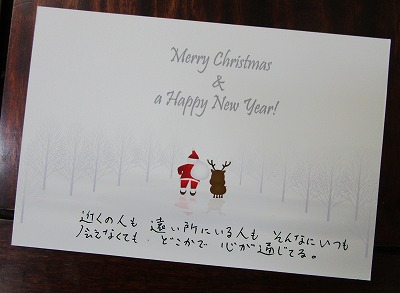 Merry Christmas
&
a Happy New Year!
近くの人も 遠い所にいる人も そんなにいつも
会えなくても、どこかで 心が通じてる。